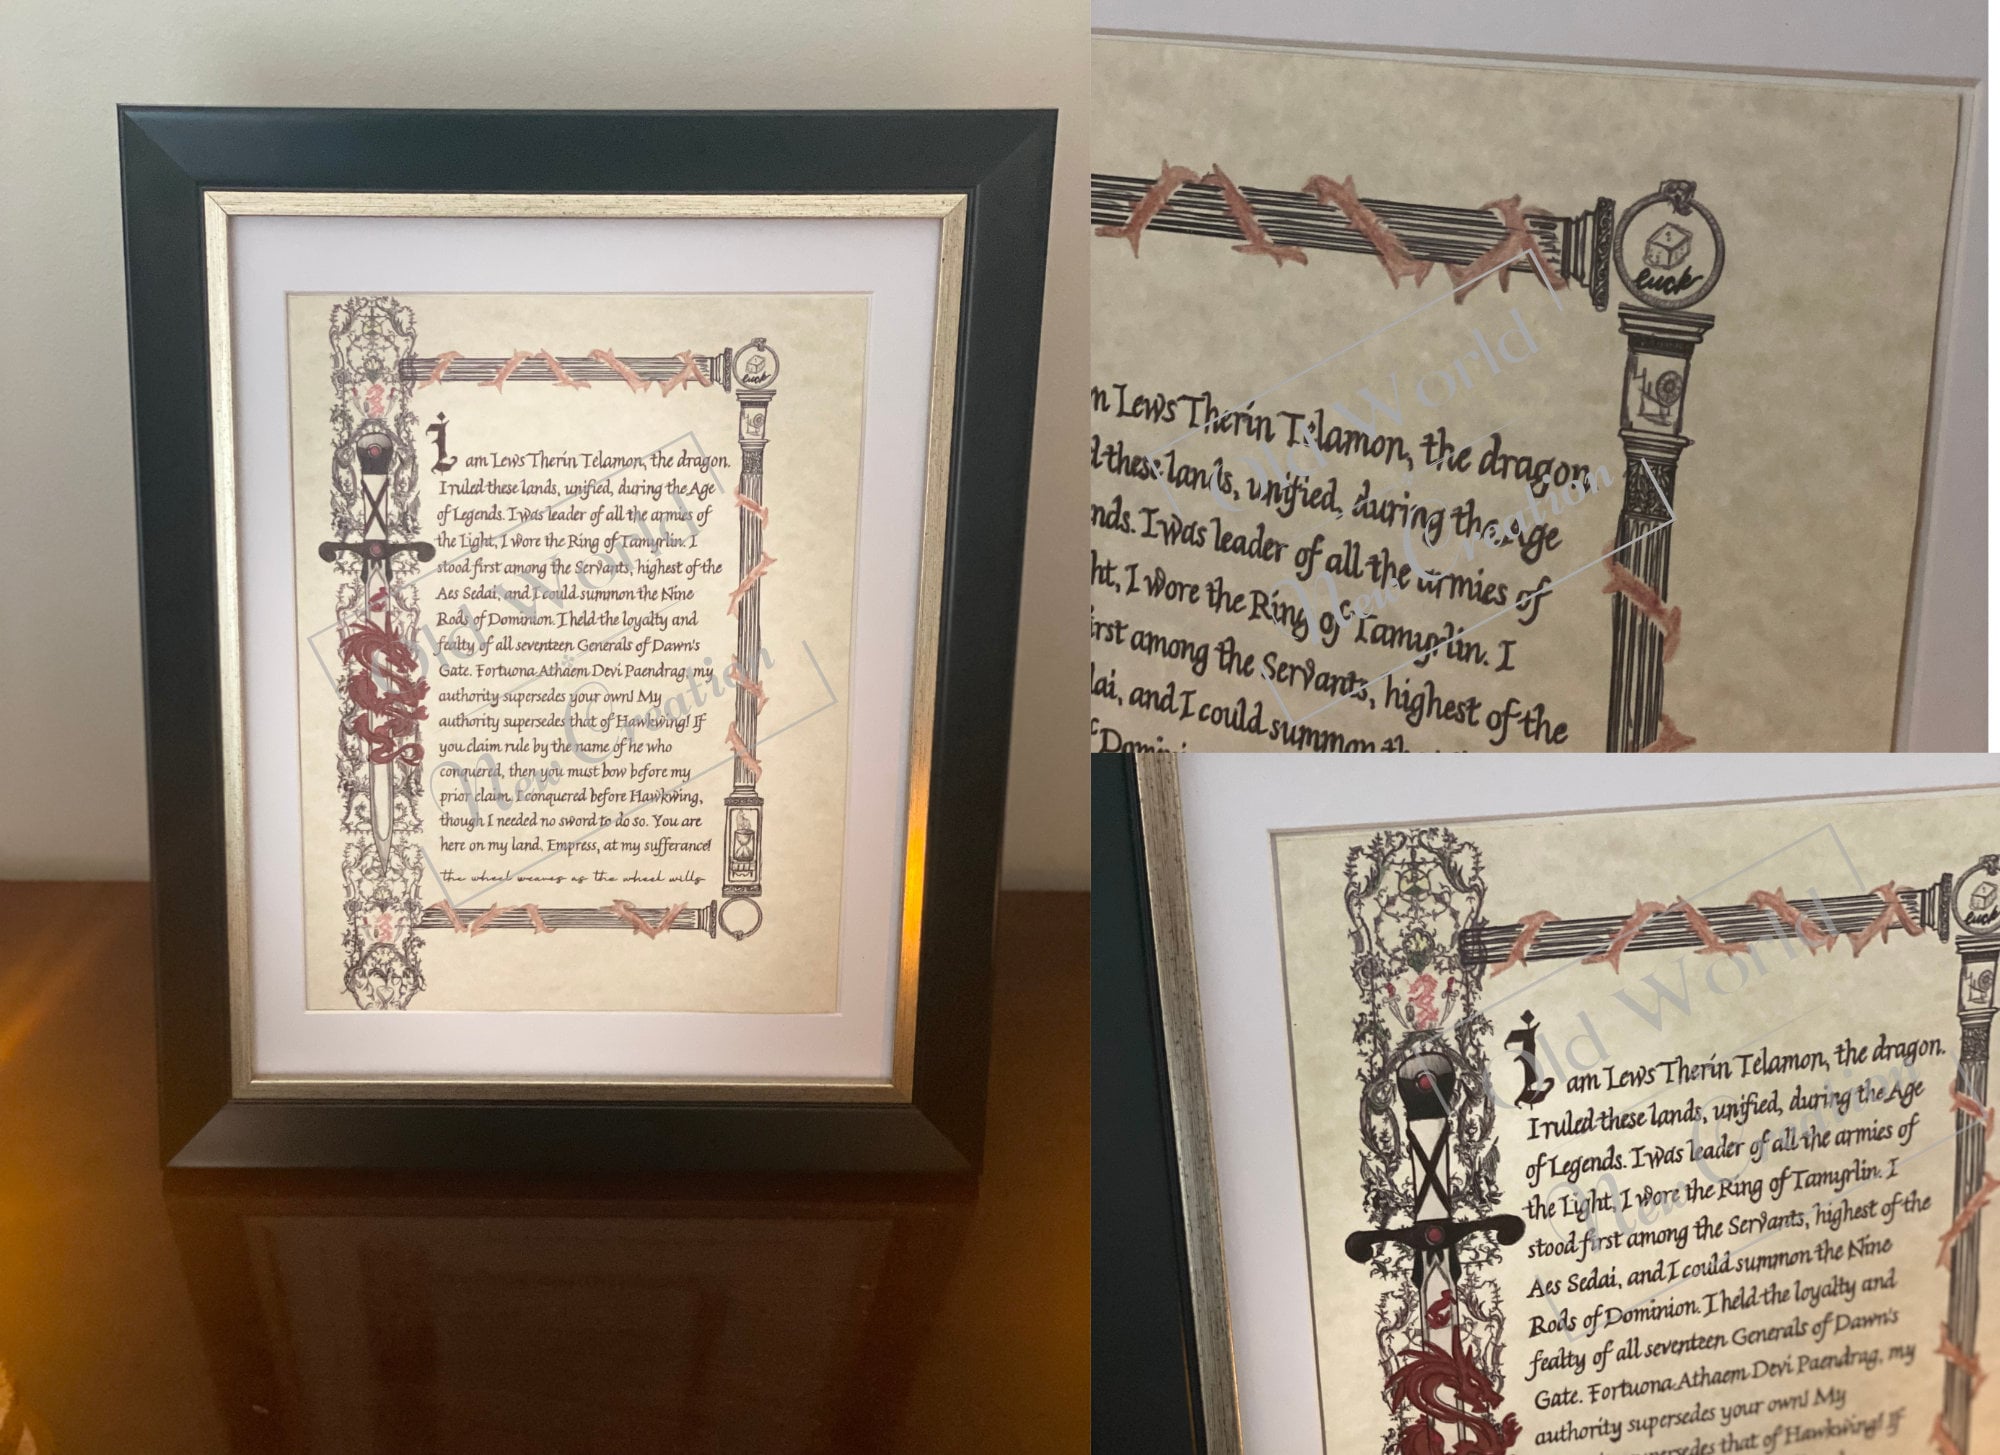 luck
I am Lews Therin Telamon, the dragon.
I ruled these lands, unified, during the Age
of Legends. I was leader of all the armies of
the Light, I wore the Ring of Tamyrlin. I
stood first among the Servants, highest of the
Aes Sedai, and I could summon the Nine
Rods of Dominion. I held the loyalty and
fealty of all seventeen Generals of Dawn's
Gate. Fortuona Athaem Devi Paendrag, my
authority supersedes your own! My
authority supersedes that of Hawkwing! If
you claim rule by the name of he who
conquered, then you must bow before my
prior claim. I conquered before Hawkwing,
though I needed no sword to do so. You are
here on my land, Empress, at my sufferance!
the wheel weaves as the wheel wills
Old World
New Creation
luck
m Lews Therin Telamon, the dragon.
d these lands, unified, during the Age
nds. I was leader of all the armies of
ht, I wore the Ring of Tamyrlin. I
irst among the Servants, highest of the
dai, and I could summon the
Old World
New Creation
luck
I am Lews Therin Telamon, the dragon.
I ruled these lands, unified, during the Age
of Legends. I was leader of all the armies of
the Light, I wore the Ring of Tamyrlin. I
stood first among the Servants, highest of the
Aes Sedai, and I could summon the Nine
Rods of Dominion. I held the loyalty and
fealty of all seventeen Generals of Dawn's
Gate. Fortuona Athaem Devi Paendrag, my
authority supersedes your own! My
supersedes that of Hawkwing! If
Old World
New Creation